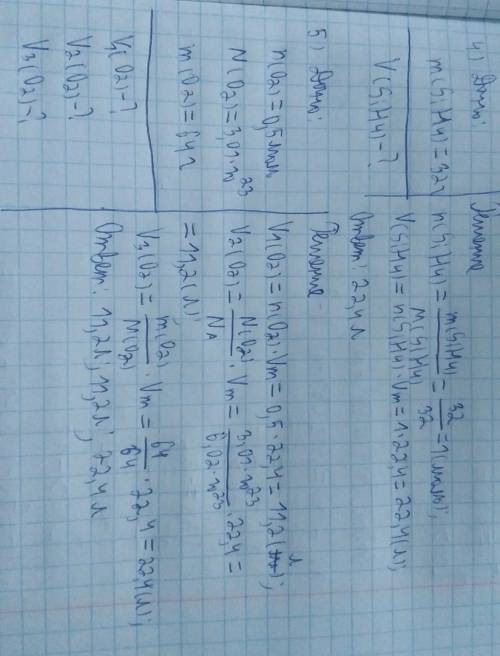 4) Дано:
m(SiH4) = 32 г
V(SiH4) - ?
Решение
n(SiH4) = m(SiH4) / M(SiH4) = 32 / 32 = 1 (моль);
V(SiH4) = n(SiH4) · Vm = 1 · 22,4 = 22,4 (л);
Ответ: 22,4 л
5) Дано:
n(O2) = 0,5 моль
N(O2) = 3,01 · 10^23
m(O2) = 64 г
V1(O2) - ?
V2(O2) - ?
V3(O2) - ?
Решение
V1(O2) = n(O2) · Vm = 0,5 · 22,4 = 11,2 (л);
V2(O2) = N(O2) / NA · Vm = 3,01 · 10^23 / 6,02 · 10^23 · 22,4 =
= 11,2 (л);
V3(O2) = m(O2) / M(O2) · Vm = 64 / 64 · 22,4 = 22,4 (л);
Ответ: 11,2 л; 11,2 л; 22,4 л